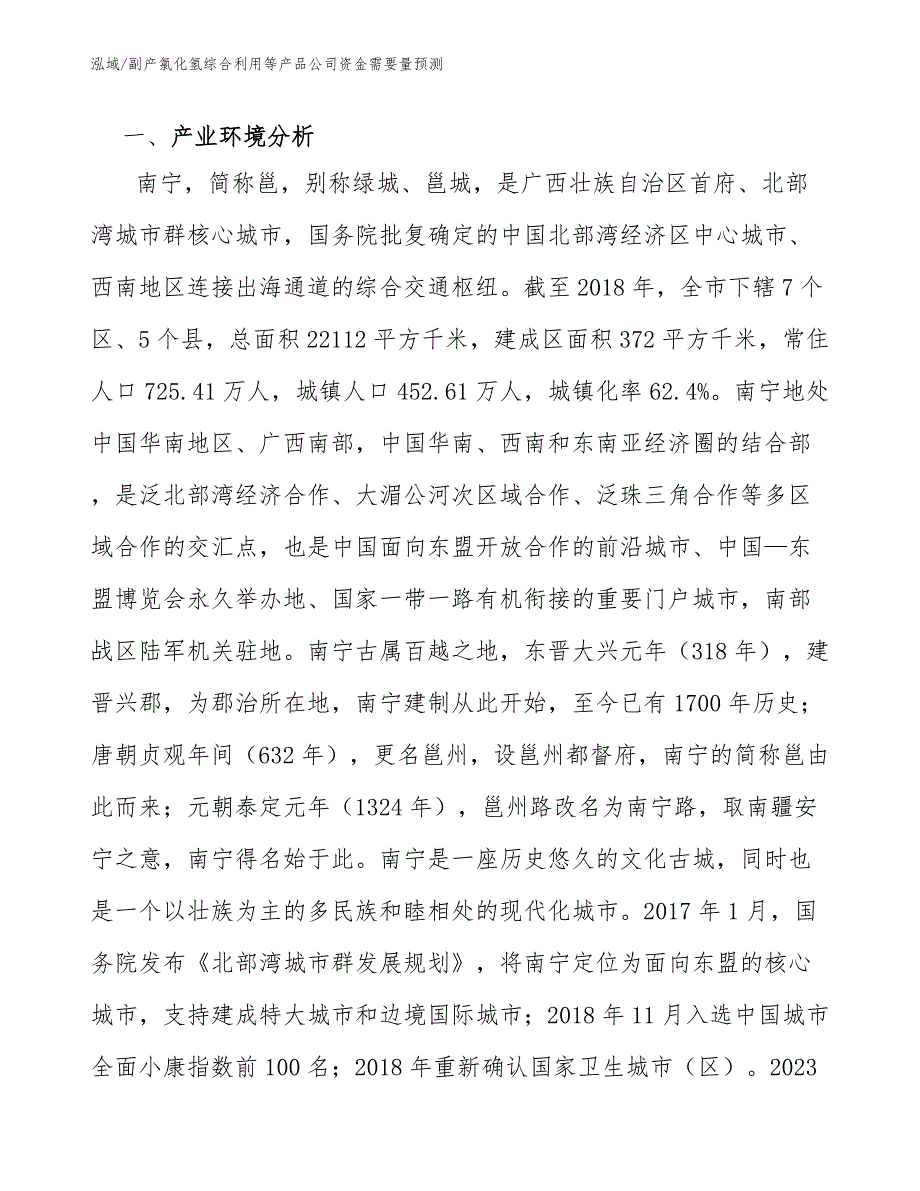 泓域/副产氯化氢综合利用等产品公司资金需要量预测
一、产业环境分析
南宁，简称邕，别称绿城、邕城，是广西壮族自治区首府、北部
湾城市群核心城市，国务院批复确定的中国北部湾经济区中心城市、
西南地区连接出海通道的综合交通枢纽。截至 2018 年，全市下辖 7 个
区、5 个县，总面积 22112 平方千米，建成区面积 372 平方千米，常住
人口 725.41 万人，城镇人口 452.61 万人，城镇化率 62.4%。南宁地处
中国华南地区、广西南部，中国华南、西南和东南亚经济圈的结合部
，是泛北部湾经济合作、大湄公河次区域合作、泛珠三角合作等多区
域合作的交汇点，也是中国面向东盟开放合作的前沿城市、中国—东
盟博览会永久举办地、国家一带一路有机衔接的重要门户城市，南部
战区陆军机关驻地。南宁古属百越之地，东晋大兴元年（318 年），建
晋兴郡，为郡治所在地，南宁建制从此开始，至今已有 1700 年历史；
唐朝贞观年间（632 年），更名邕州，设邕州都督府，南宁的简称邕由
此而来；元朝泰定元年（1324 年），邕州路改名为南宁路，取南疆安
宁之意，南宁得名始于此。南宁是一座历史悠久的文化古城，同时也
是一个以壮族为主的多民族和睦相处的现代化城市。2017 年 1 月，国
务院发布《北部湾城市群发展规划》，将南宁定位为面向东盟的核心
城市，支持建成特大城市和边境国际城市；2018 年 11 月入选中国城市
全面小康指数前 100 名；2018 年重新确认国家卫生城市（区）。2023